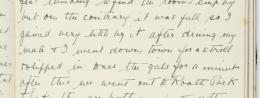 thinking to find the room empty
but on the contrary it was full so I
gained very little by it after dining my
mate & I went down town for a stroll
& slipped in the girls for a minute
after this we went out to Roath Park